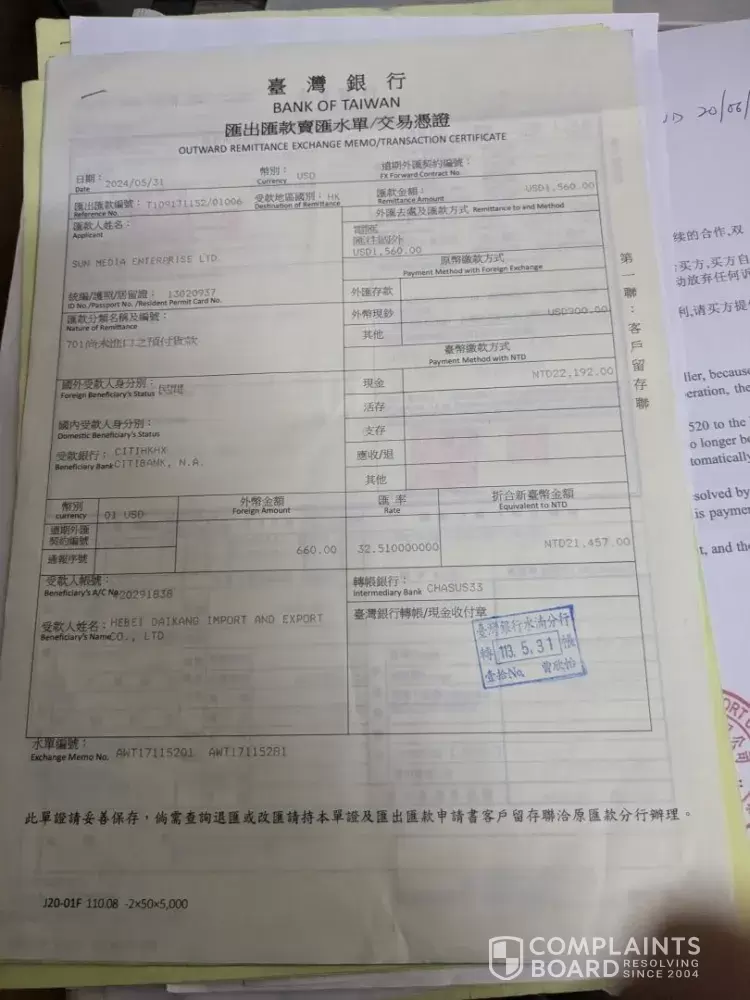 臺灣銀行
BANK OF TAIWAN
匯出匯款賣匯水單/交易憑證
OUTWARD REMITTANCE EXCHANGE MEMO/TRANSACTION CERTIFICATE
日期： 2024/05/31 幣別： USD 遠期外匯契約編號：
Date Currency FX Forward Contract No.
匯出匯款編號： T109171152/01006 受款地區國別： HK 匯款金額： USD1,560.00
Reference No. Destination of Remittance Remittance Amount
匯款人姓名： 外匯去處及匯款方式 Remittance to and Method
Applicant
SUN MEDIA ENTERPRISE LTD
USD1,560.00
原幣繳款方式
Payment Method with Foreign Exchange
統編/護照/居留證： 13020937 外匯存款
ID No./Passport No. /Resident Permit Card No.
匯款分類名稱及編號： 外幣現鈔 USD900.00
Nature of Remittance
701尚未進口之預付貨款 其他
臺幣繳款方式
Payment Method with NTD
國外受款人身分別： 民間 現金 NTD22,192.00
Foreign Beneficiary's Status
活存
國內受款人身分別： 支存
Domestic Beneficiary's Status
受款銀行： CITIHKHX 應收/退
Beneficiary Bank CITIBANK, N.A.
其他
幣別 外幣金額 匯率 折合新臺幣金額
currency 01 USD Foreign Amount Rate Equivalent to NTD
遠期外匯
契約編號
通報序號 660.00 32.510000000 NTD21,457.00
受款人帳號： 轉帳銀行：
Beneficiary's A/C No 20291838 Intermediary Bank CHASUS33
受款人姓名： HEBEI DAIKANG IMPORT AND EXPORT 臺灣銀行轉帳/現金收付章
Beneficiary's Name CO., LTD
臺灣銀行水湳分行
轉 113. 5. 31 帳
壹拾No.
水單編號：
Exchange Memo No. AWT17115201 AWT17115281
此單證請妥善保存，倘需查詢退匯或改匯請持本單證及匯出匯款申請書客戶留存聯洽原匯款分行辦理。
J20-01F 110.08 -2×50×5,000
第一聯：客戶留存聯
20/06/
续的合作,双
买方,买方自
动放弃任何诉
利,请买方提
ller, because
eration, the
520 to the
o longer be
tomatically
solved by
is paymen
t, and the
COMPLAINTS
BOARD RESOLVING
SINCE 2004